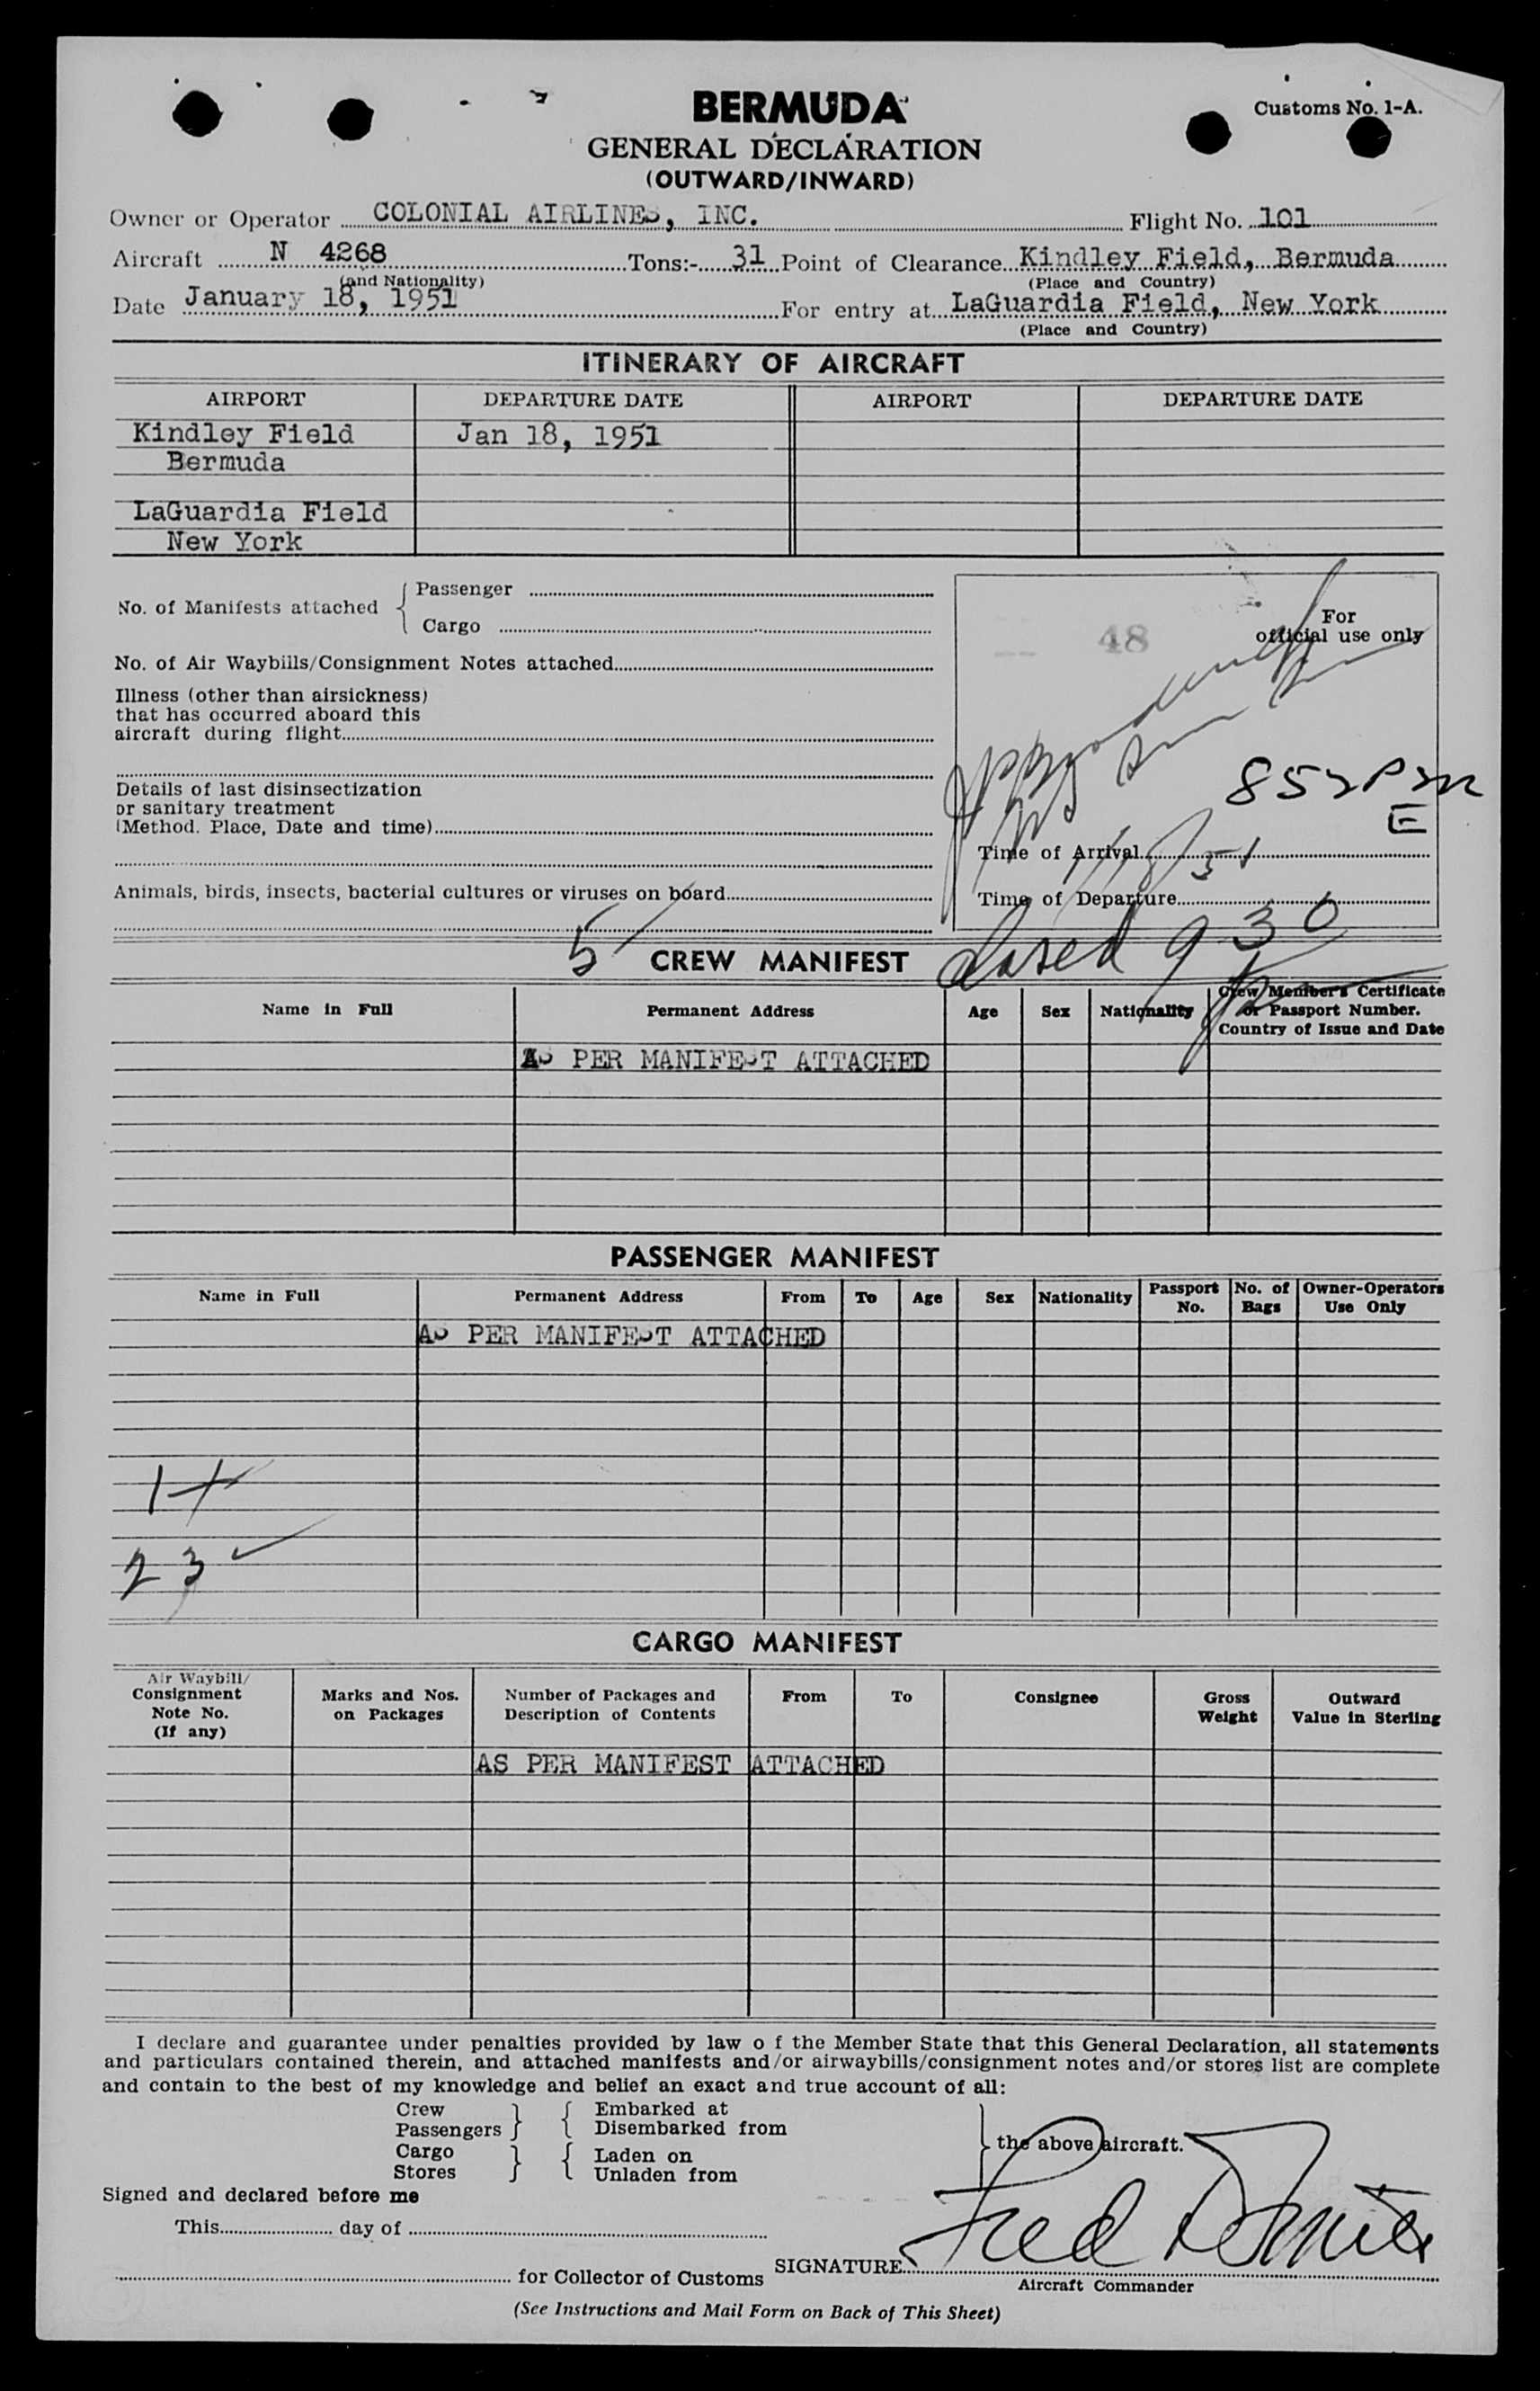 Customs No. 1-A.
BERMUDA
GENERAL DECLARATION
(OUTWARD/INWARD)
Owner or Operator COLONIAL AIRLINES, INC. Flight No. 101
Aircraft N 4268 Tons:- 31 Point of Clearance Kindley Field, Bermuda
(and Nationality) (Place and Country)
Date January 18, 1951 For entry at LaGuardia Field, New York
(Place and Country)
ITINERARY OF AIRCRAFT
AIRPORT DEPARTURE DATE AIRPORT DEPARTURE DATE
Kindley Field Jan 18, 1951
Bermuda
LaGuardia Field
New York
No. of Manifests attached Passenger
Cargo
For
official use only
48
No. of Air Waybills/Consignment Notes attached
Illness (other than airsickness)
that has occurred aboard this
aircraft during flight
Details of last disinsectization
or sanitary treatment
(Method. Place, Date and time)
852 PM
E
Time of Arrival 1/18/51
Animals, birds, insects, bacterial cultures or viruses on board
Time of Departure
5 CREW MANIFEST
930
Name in Full Permanent Address Age Sex Nationality Crew Member's Certificate
or Passport Number.
Country of Issue and Date
AS PER MANIFEST ATTACHED
PASSENGER MANIFEST
Name in Full Permanent Address From To Age Sex Nationality Passport No. No. of Bags Owner-Operators Use Only
AS PER MANIFEST ATTACHED
23
CARGO MANIFEST
Air Waybill/
Consignment
Note No.
(If any)
Marks and Nos.
on Packages
Number of Packages and
Description of Contents
From To Consignee
Gross
Weight
Outward
Value in Sterling
AS PER MANIFEST ATTACHED
I declare and guarantee under penalties provided by law o f the Member State that this General Declaration, all statements
and particulars contained therein, and attached manifests and/or airwaybills/consignment notes and/or stores list are complete
and contain to the best of my knowledge and belief an exact and true account of all:
Crew Embarked at
Passengers Disembarked from
the above aircraft.
Cargo Laden on
Stores Unladen from
Signed and declared before me
This day of
for Collector of Customs
SIGNATURE Fred
Aircraft Commander
(See Instructions and Mail Form on Back of This Sheet)